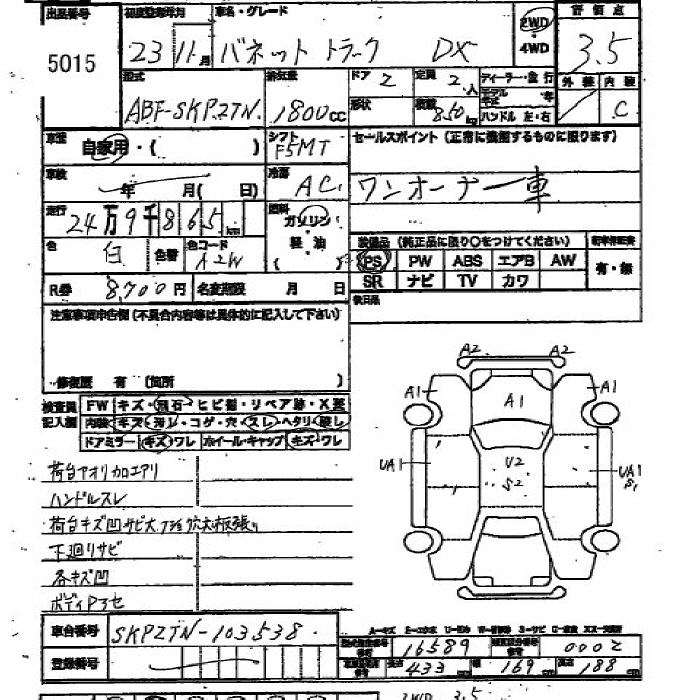 出品番号 初度登録年月 車名・グレード 2WD・4WD 評価点
5015 23 11月 バネット トラック DX 3.5
型式 排気量 ドア 2 定員 2人 外装 内装
ABF-SKP2TN 1800cc 形状 積載 850kg ハンドル 左・右 C
車歴 自家用・( ) シフト F5MT セールスポイント(正常に機能するものに限ります)
車検 年 月( 日) 冷房 AC ワンオーナー車
走行 24万9千865km 燃料 ガソリン・軽油
色 白 色替 色コード A2W 装備品(純正品に限り○をつけてください)
PS PW ABS エアB AW 有・無
R券 8,700円 名変期限 月 日 SR ナビ TV カワ
後日品
注意事項申告欄(不具合内容等は具体的に記入して下さい)
修復歴 有 (箇所 )
検査員記入欄 FW キズ・飛石・ヒビ割・リペア跡・X要
内装 キズ・汚レ・コゲ・穴・スレ・ヘタリ・破レ
ドアミラー キズ・ワレ ホイール・キャップ キズ・ワレ
荷台アオリカロエアリ
ハンドルスレ
荷台キズ凹サビ大
下廻リサビ
各キズ凹
ボディ
A2 A2
A1 A1
A1
UA1 U2 UA1
S2 S1
車台番号 SKP2TN-103538
型式指定番号 16589 類別区分番号 0002
登録番号 長さ 433cm 幅 169cm 高さ 188cm
2WD 3.5